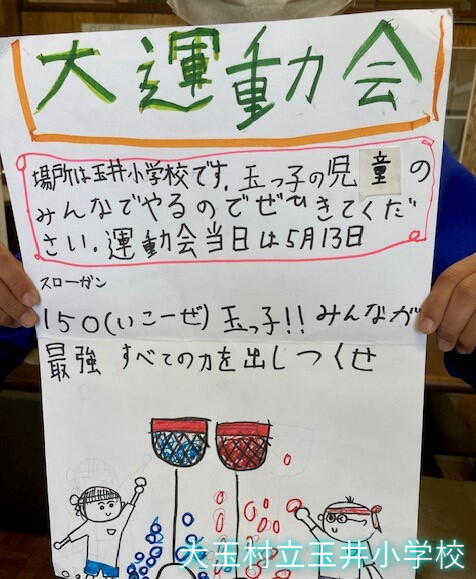 大運動会
場所は玉井小学校です。玉っ子の児童の
みんなでやるのでぜひきてくだ
さい。運動会当日は5月13日
スローガン
150(いこーぜ)玉っ子!!みんなが
最強 すべての力を出しつくせ
大玉村立玉井小学校